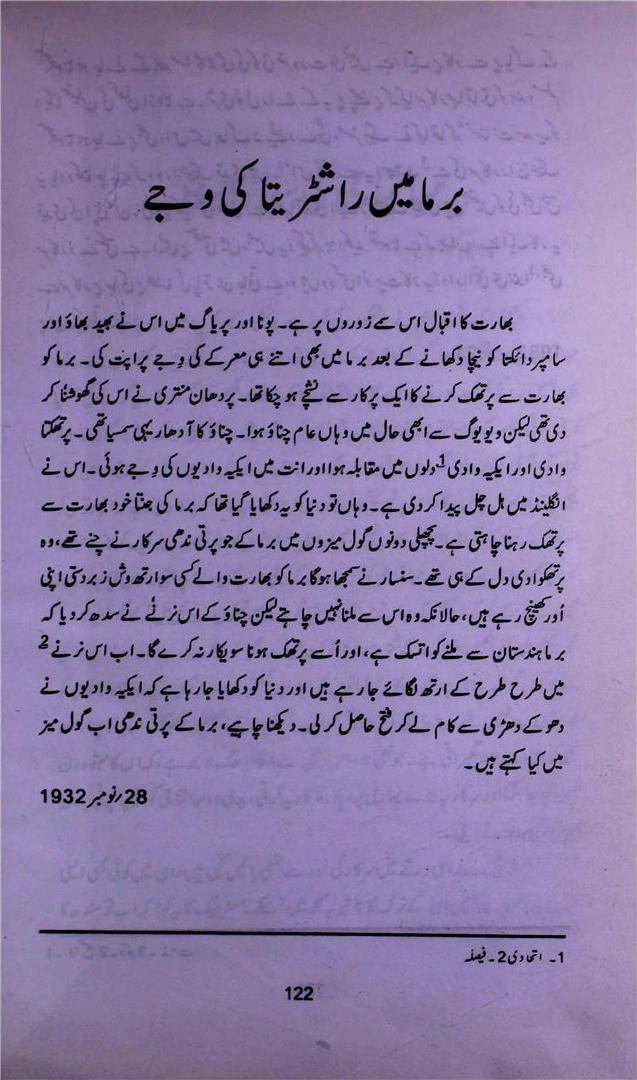 برما میں راشٹریتا کی وجے
بھارت کا اقبال اس سے زوروں پر ہے۔ پونا اور پریاگ میں اس نے بھید بھاؤ اور
سامپردائکتا کو نیچا دکھانے کے بعد برما میں بھی اتنے ہی معرکے کی وجے پراپت کی۔ برما کو
بھارت سے پرتھک کرنے کا ایک پرکار سے نشچے ہو چکا تھا۔ پردھان منتری نے اس کی گھوشنا کر
دی تھی لیکن دیویوگ سے ابھی حال میں وہاں عام چناؤ ہوا۔ چناؤ کا آدھار یہی سمسیا تھی۔ پرتھکتا
وادی اور ایکیہ وادی1 دلوں میں مقابلہ ہوا اور انت میں ایکیہ وادیوں کی وجے ہوئی۔ اس نے
انگلینڈ میں ہل چل پیدا کر دی ہے۔ وہاں تو دنیا کو یہ دکھایا گیا تھا کہ برما کی جنتا خود بھارت سے
پرتھک رہنا چاہتی ہے۔ پچھلی دونوں گول میزوں میں برما کے جو پرتی ندھی سرکار نے چنے تھے، وہ
پرتھکوادی دل کے ہی تھے۔ سنسار نے سمجھا ہوگا برما کو بھارت والے کسی سوارتھ وش زبردستی اپنی
اُور کھینچ رہے ہیں، حالانکہ وہ اس سے ملنا نہیں چاہتے لیکن چناؤ کے اس نرنے نے سدھ کر دیا کہ
برما ہندستان سے ملنے کو اتسک ہے، اور اُسے پرتھک ہونا سویکار نہ کرے گا۔ اب اس نرنے2
میں طرح طرح کے ارتھ لگائے جا رہے ہیں اور دنیا کو دکھایا جا رہا ہے کہ ایکیہ وادیوں نے
دھوکے دھڑی سے کام لے کر فتح حاصل کر لی۔ دیکھنا چاہیے، برما کے پرتی ندھی اب گول میز
میں کیا کہتے ہیں۔
28؍نومبر 1932
1۔ اتحادی 2۔ فیصلہ
122